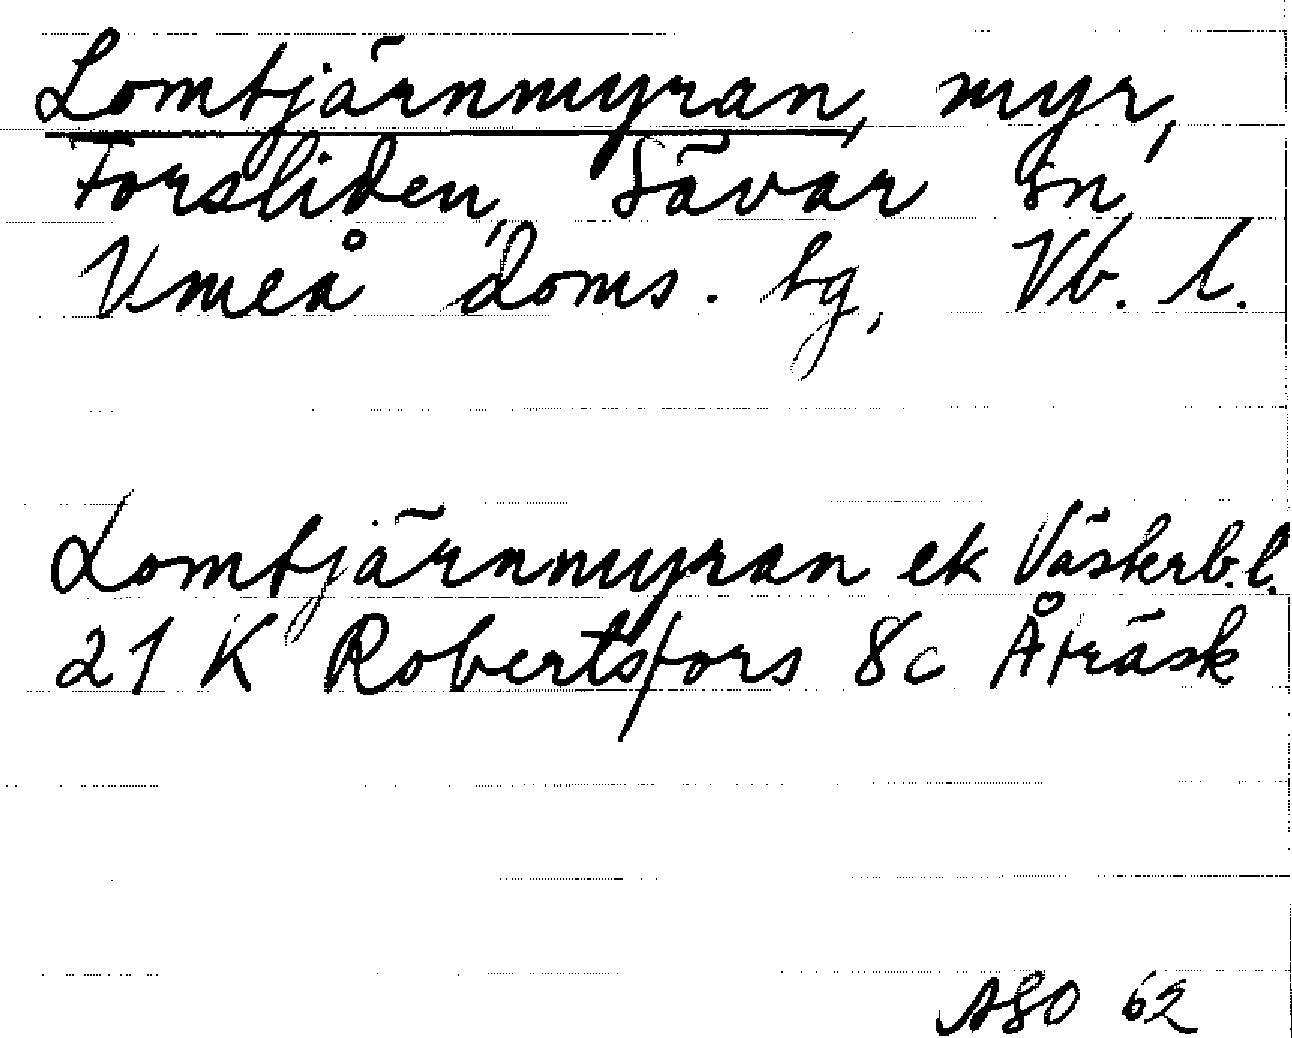 Lomtjärnmyran, myr,
Forsliden, Sävar sn,
Umeå doms. tg, Vb. l.
Lomtjärnmyran ek Västerb.l.
21 K Robertsfors 8c Åträsk
ASO 62